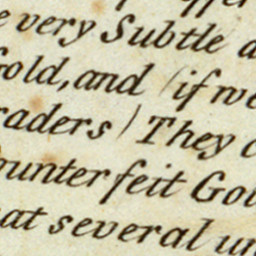 very Subtle
Gold, and (if we
raders) They
ounterfeit Gol
at several un